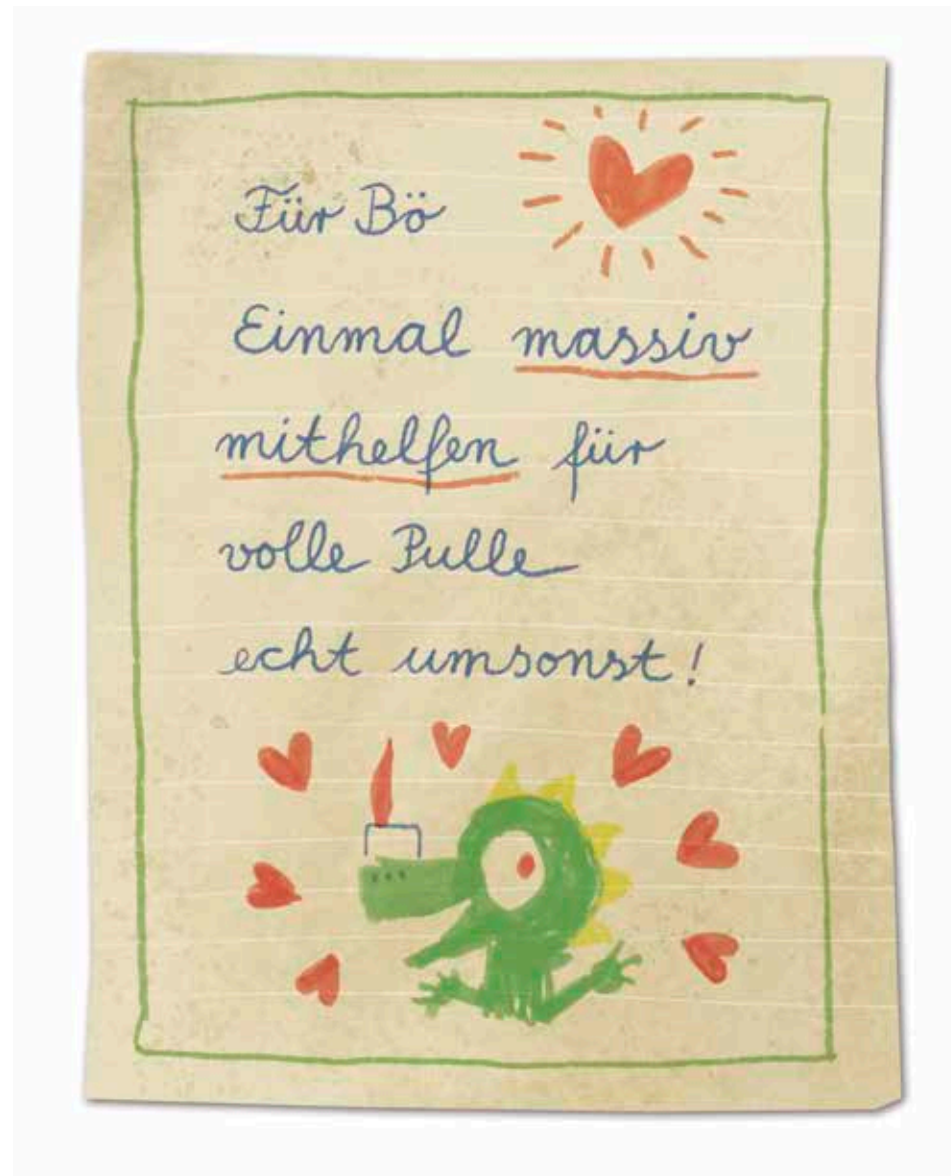 Für Bö
Einmal massiv
mithelfen für
volle Pulle
echt umsonst!